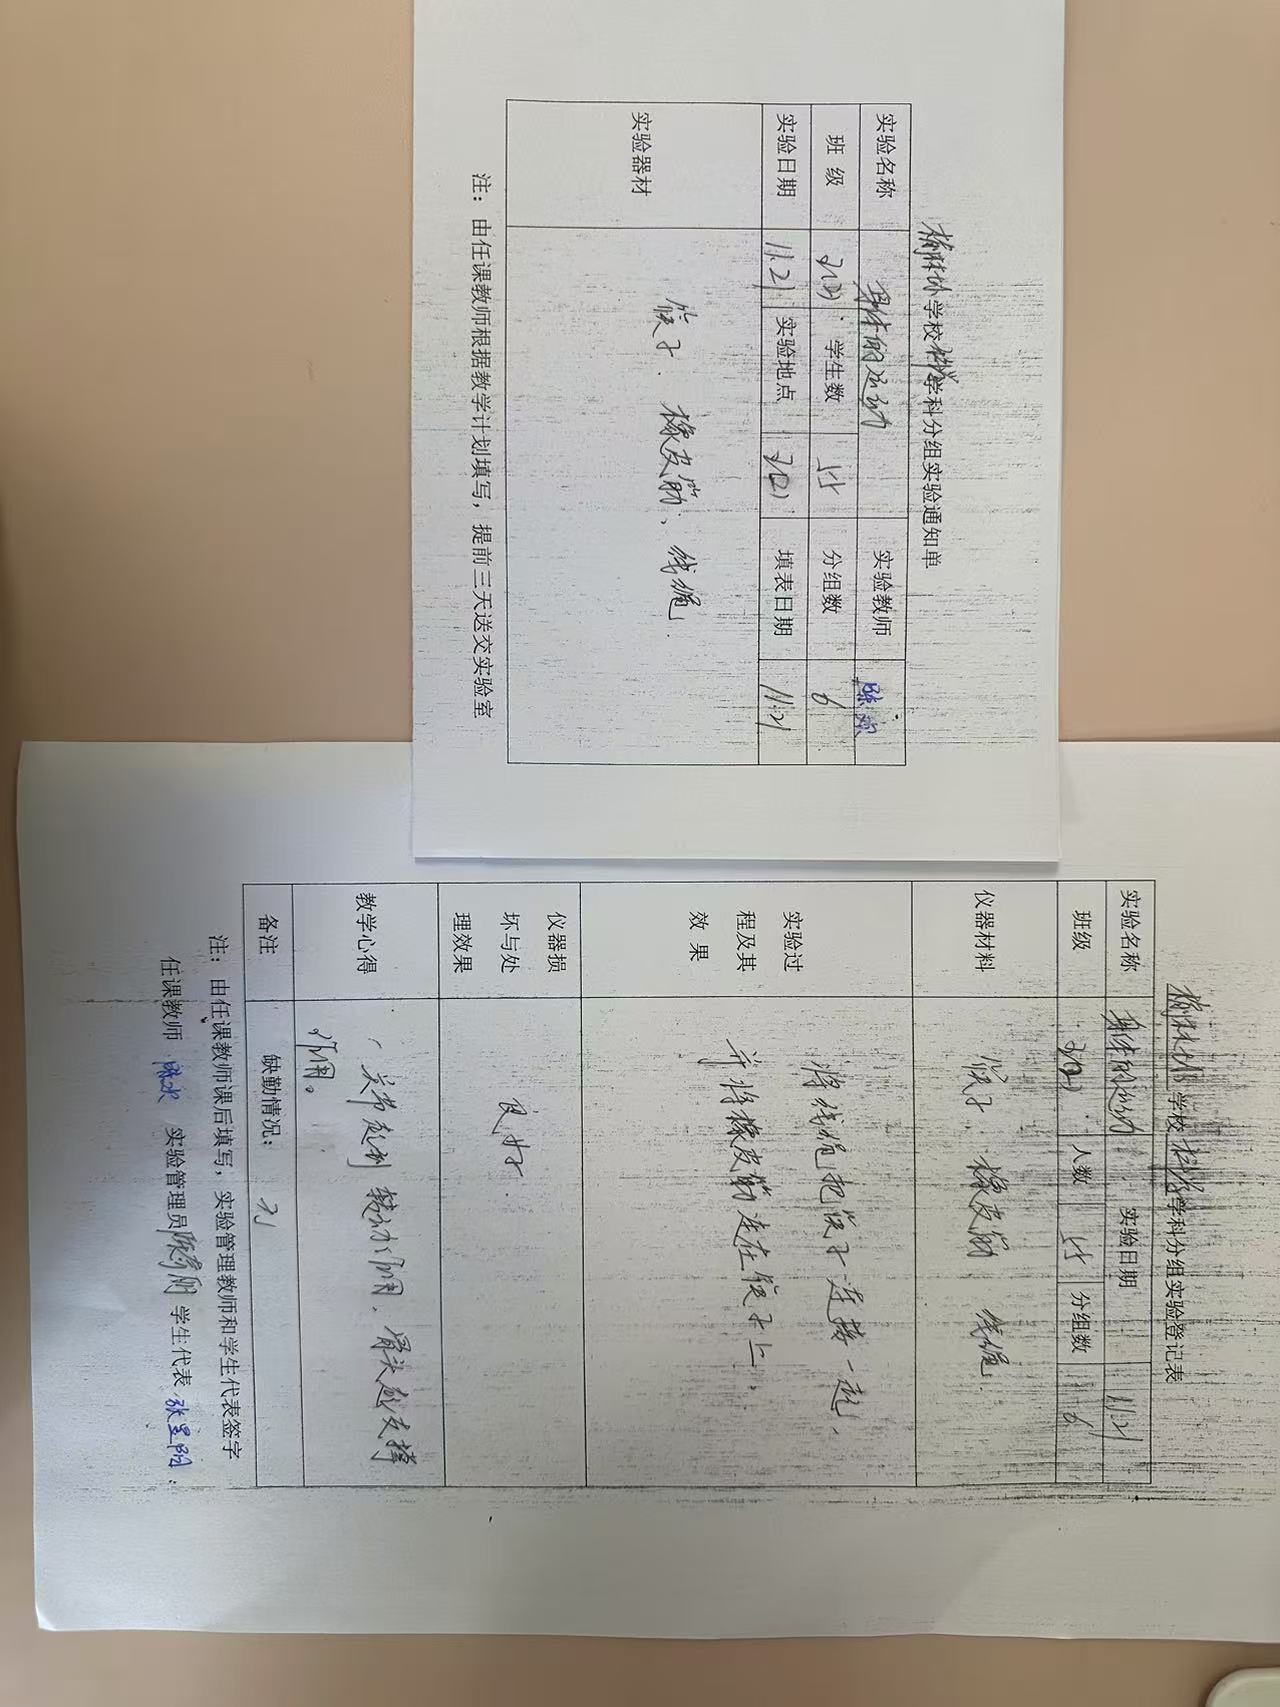 学校科学学科分组实验通知单
实验名称 身体的运动 实验教师
班 级 学生数 55 分组数 6
实验日期 11.21 实验地点 填表日期 11.21
实验器材 筷子、橡皮筋、线绳.
注：由任课教师根据教学计划填写，提前三天送交实验室
学校科学学科分组实验登记表
实验名称 身体的运动 实验日期 11.21
班级 人数 55 分组数 6
仪器材料 筷子、橡皮筋 线绳.
实验过
程及其
效 果
将线绳把筷子连接一起，
并将橡皮筋连在筷子上，
仪器损
坏与处
理效果
良好.
教学心得 关节起到转动作用，骨头起支撑
作用。
备注 缺勤情况：
注：由任课教师课后填写，实验管理教师和学生代表签字
任课教师 实验管理员 学生代表